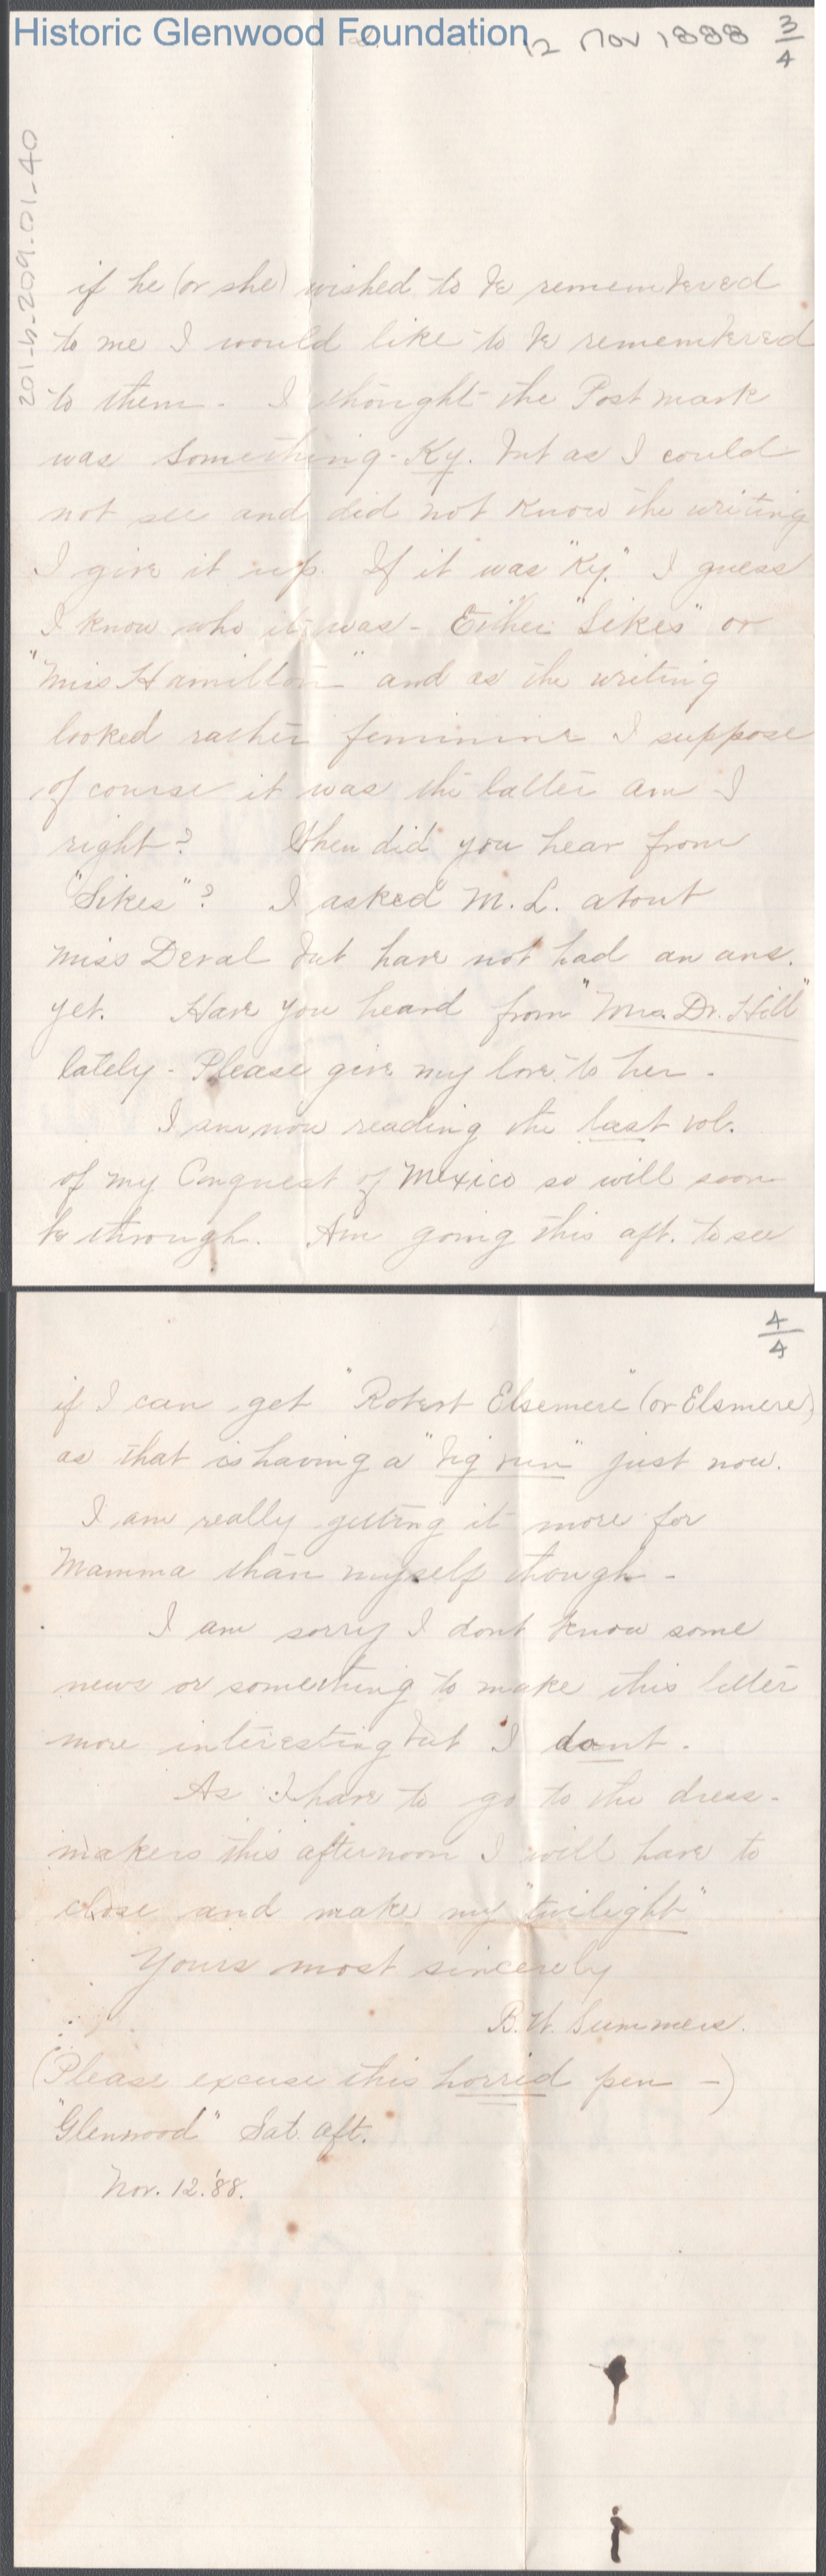 Historic Glenwood Foundation
12 Nov 1888 3/4
201-h-209-01-40
if he (or she) wished to be remembered
to me I would like to be remembered
to them - I thought the Post mark
was something - Ky. but as I could
not see and did not know the writing
I give it up. If it was "Ky." I guess
I know who it was - Either "Sikes" or
"Miss Hamilton" and as the writing
looked rather feminine I suppose
of course it was the latter am I
right? When did you hear from
"Sikes"? I asked M. L. about
Miss Deval but have not had an ans.
yet. Have you heard from "Mrs. Dr. Hill"
lately - Please give my love to her -
I am now reading the last vol.
of my Conquest of Mexico so will soon
be through. Am going this aft. to see
4/4
if I can get "Robert Elsemere" (or Elsmere)
as that is having a "big run" just now.
I am really getting it more for
Mamma than myself though -
I am sorry I dont know some
news or something to make this letter
more interesting but I dont.
As I have to go to the dress-
makers this afternoon I will have to
close and make my "twilight"
Yours most sincerely
B. W. Summers.
(Please excuse this horrid pen -)
"Glenwood" Sat. aft.
Nov. 12. '88.